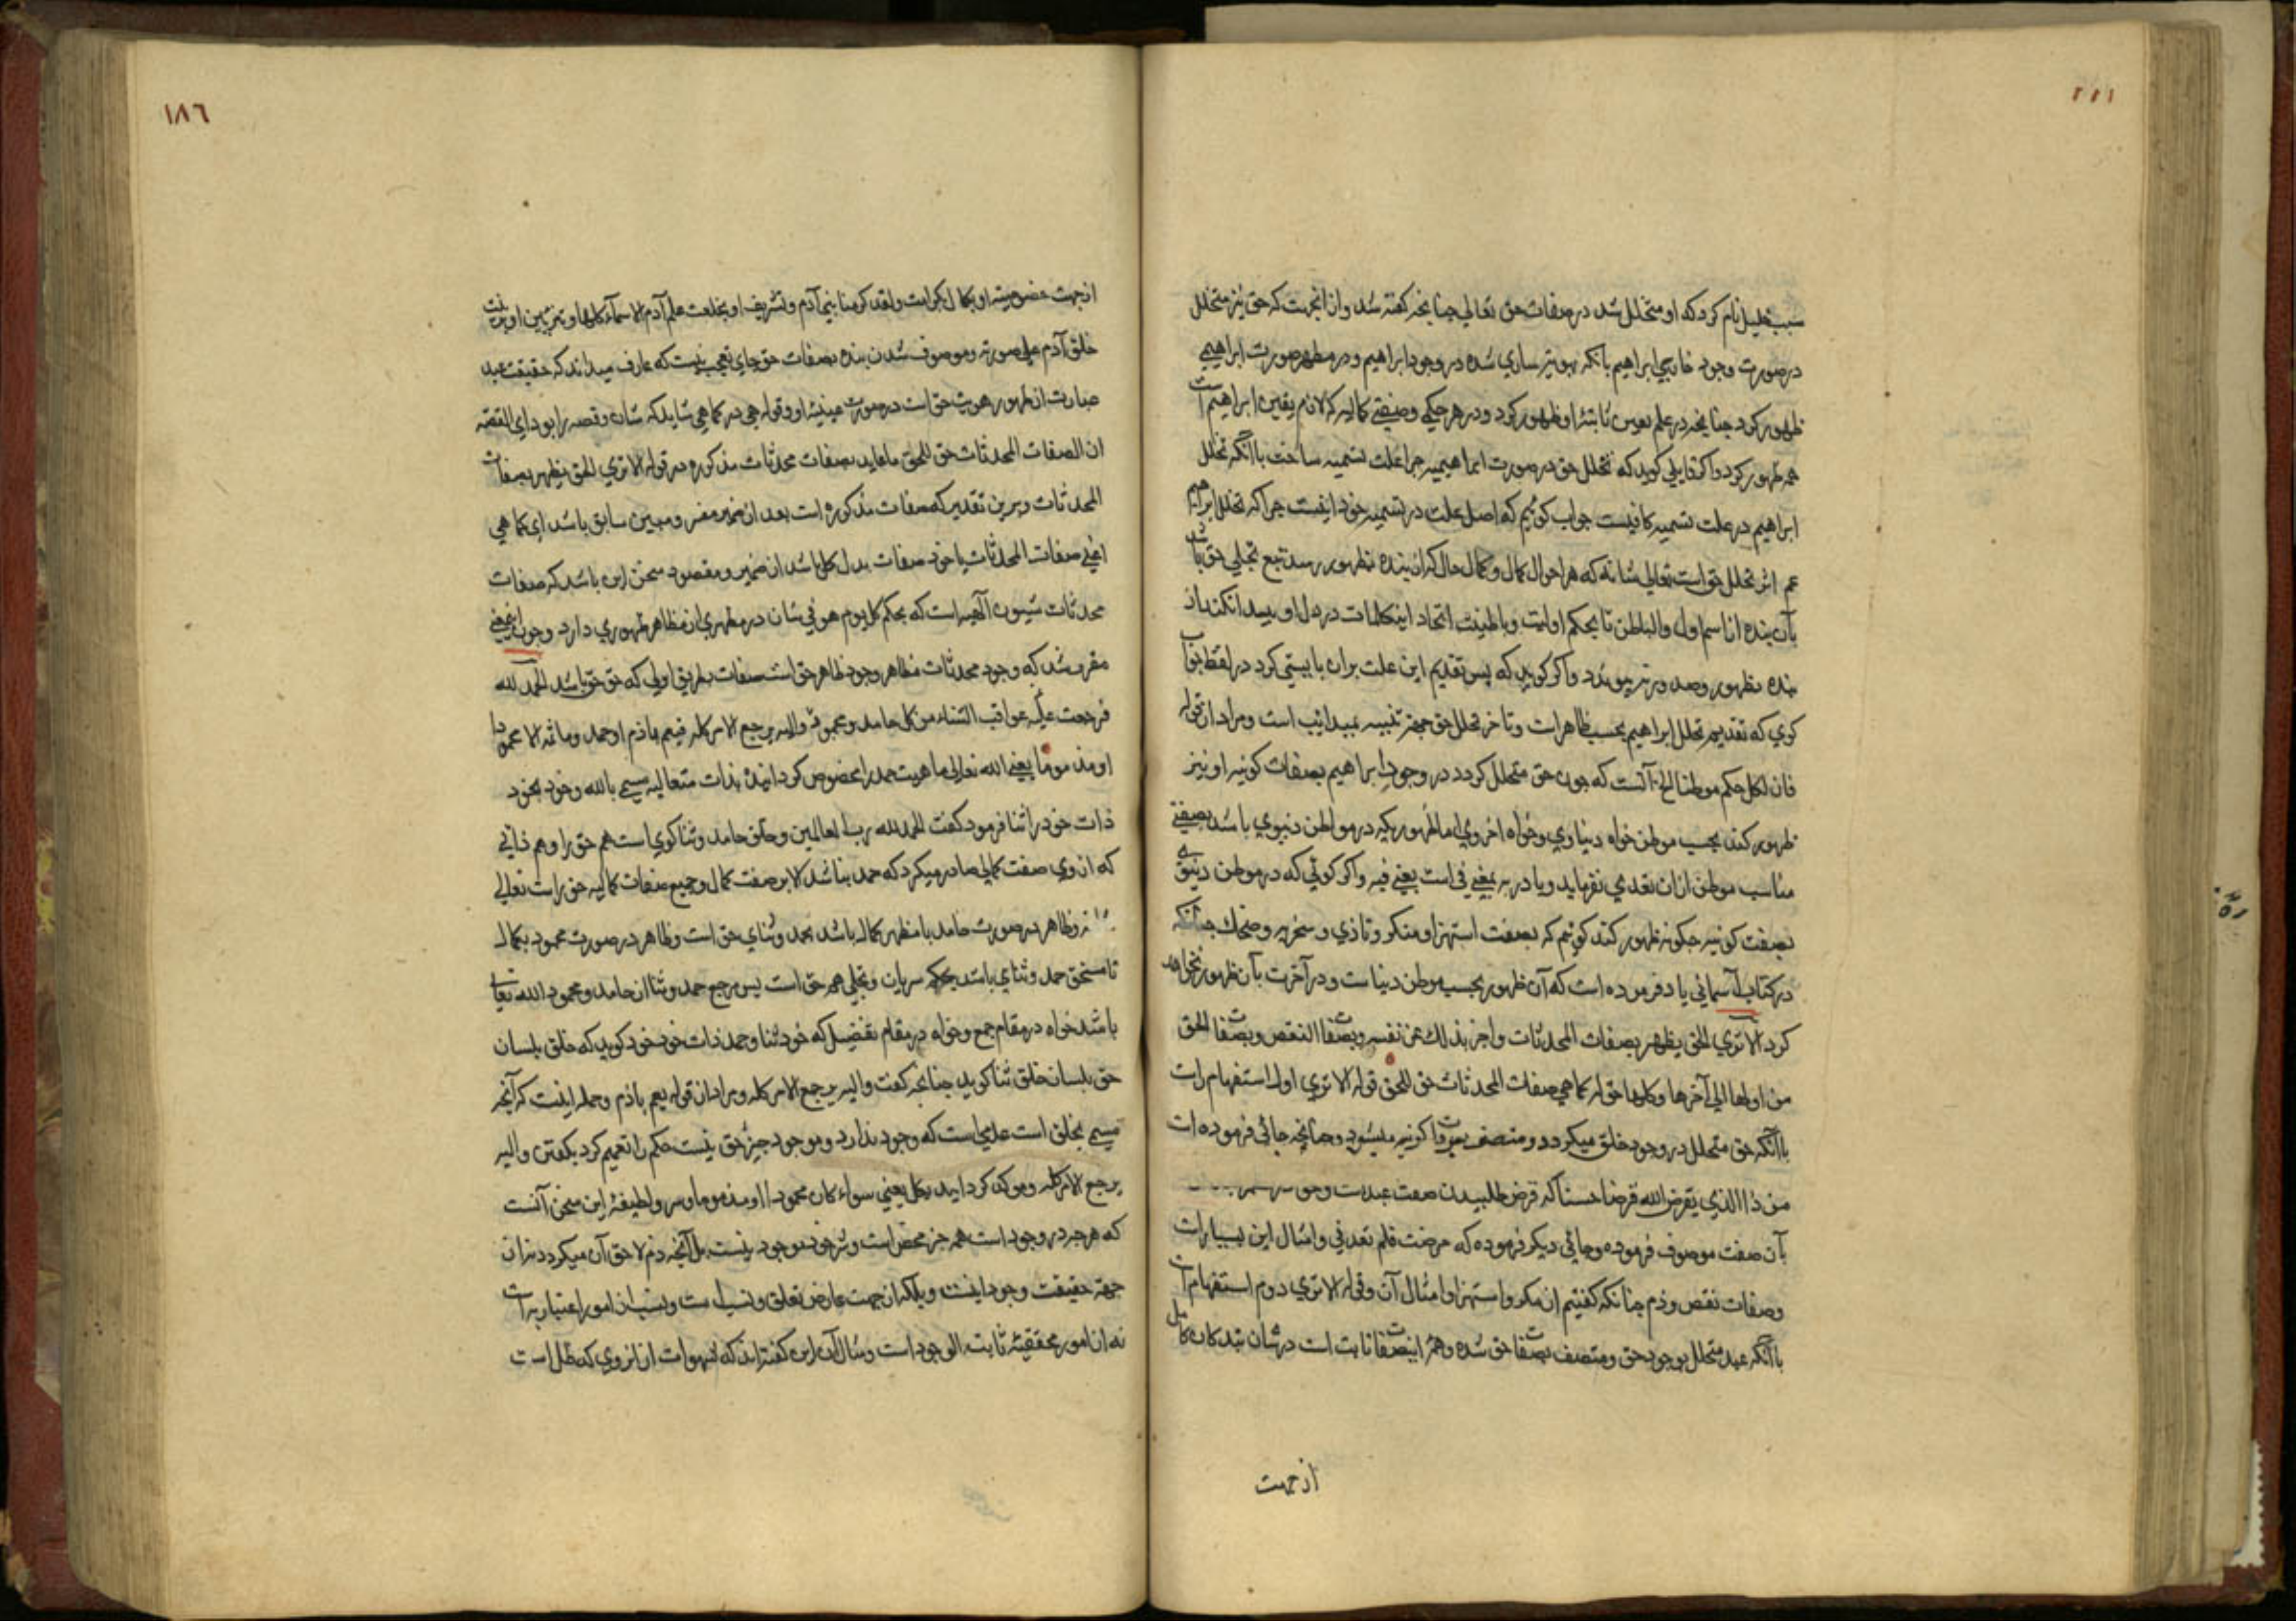 سبب خلیل نام کرد که او متخلل شد در صفات حق تعالی چنانچه کفته شد و از انجهت که حق نیز متخلل
در صورت وجود خارجی ابراهیم بانکه بهویته ساری شده در وجود ابراهیم و در مظهر صورت ابراهیمی
ظهور کرد چنانچه در علم بعین ثابته او ظهور کرد و در هر حکمی و صفتی کمالیه که لازم یقین ابراهیم است
همه ظهور کرد و اکر قایلی کوید که تخلل حق در صورت ابراهیمیه چرا علت تسمیه ساخت باانکه تخلل
ابراهیم در علت تسمیه کافیست جواب کوئیم که اصل علت در تسمیه خود اینست چرا که تخلل ابراهیم
عم اثر تخلل حق است تعالی شانه که هر احوال کمال و کمال حال کزان بنده بظهور رسد تبع تجلی حق باشد
بآن بنده از اسم اول والباطن تا بحکم اولیت و باطنیت اتحاد این کلمات در دل او پیدا نکند از
بنده بظهور و صدور نه پیوندد و اکر کوید که پس تقدیم این علت بران بایستی کرد در لفظ جواب
کوی که تقدیم تخلل ابراهیم بحسب ظاهر است و تاخر تخلل حق جهة تنبیه بمبدائیت است و مراد از قوله
فان لکل حکم موطنا الخ آنست که چون حق متخلل کردد در وجود ابراهیم بصفات کونیه او نیز
ظهور کند بحسب موطن خواه دنیاوی و خواه اخروی اما ظهوریکه در مواطن دنیوی باشد بصفتی
مناسب موطن ازان تعدی نفرماید و با در به بمعنی فی است یعنی فیه و اکر کوئی که در موطن دنیوی
بصفت کونیه چکونه ظهور کند کوئیم که بصفت استهزا و منکر و تاذی و سخریه و ضحک چنانکه
در کتاب آسمانی یاد فرموده است که آن ظهور بحسب موطن دنیاست و در آخرت بآن ظهور نخواهد
کرد الا تری الحق یظهر بصفات المحدثات واخبر بذلک عن نفسه وبصفات النقص وبصفات الحق
من اولها الی آخرها وکلها حق له کما هی صفات المحدثات حق للحق قوله الا تری اول استفهام است
باانکه حق متخلل در وجود خلق میکردد و متصف بصفات کونیه میشود و چنانچه جائی فرموده است
من ذا الذی یقرض الله قرضا حسنا که قرض طلبیدن صفت عبدست وحق
بآن صفت موصوف فرموده و جائی دیکر فرموده که مرضت فلم تعدنی و امثال این بسیار است
وصفات نقص و ذم چنانکه کفتیم از مکر و استهزا و امثال آن و قوله الا تری دوم استفهام است
باانکه عبد متخلل بوجود حق و متصف بصفات حق شده و همه این صفات ثابت است در شان بندکان کامل
از جهت
١٨٦
از جهت خصوصیته او بکمال کرامت ولقد کرمنا بنی آدم وتشریف او بخلعت علم آدم الاسماء کلها و تزیین او بزینت
خلق آدم علی صورته و موصوف شدن بنده بصفات حق جای تعجب نیست که عارف میداند که حقیقت عبد
عبارت از ظهور هویت حق است در صورت عینیه او و قوله هی در کما هی شاید که شان و قصه را بود ای القصه
ان الصفات المحدثات حق للحق یا عاید بصفات محدثات مذکوره در قوله الا تری الحق یظهر بصفات
المحدثات و برین تقدیر که صفات مذکوره است بعد از ضمیر مفسر و مبین سابق باشد ای کما هی
اعنی صفات المحدثات یا خود صفات بدل کل باشد از ضمیر و مقصود سخن این باشد که صفات
محدثات شیون الٓهیه است که بحکم کل یوم هو فی شان در مظهری از مظاهر ظهوری دارد و چون این معنی
مقرر شد که وجود محدثات مظاهر وجود ظاهر حق است صفات بطریق اولی که حق حق باشد الحمد لله
فرجعت علیه عواقب الثناء من کل حامد و محمود والیه یرجع الامر کله فیعم ما ذم او حمد وما ثمه الا محمودا
او مذموما یعنی الله تعالی ماهیت حمد را مخصوص کردانید بذات متعالیه مسمی بالله و خود بخود
ذات خود را ثنا فرمود کفت الحمد لله رب العالمین وخلق حامد و ثنا کوی است هم حق را و هم ذاتی
که از وی صفت کمالی صادر میکردد که حمد نباشد الا بر صفت کمال و جمیع صفات کمالیه حق راست تعالی
و ظاهر در صورت حامد یا مظهر کمال باشد بحمد و ثنای حق است و ظاهر در صورت محمود بکمال
تا مستحق حمد و ثنای باشد بحکم سریان و تجلی هم حق است پس مرجع حمد و ثنا از حامد و محمود الله تعالی
باشد خواه در مقام جمع و خواه در مقام تفضیل که خود ثنا و حمد ذات خود خود کوید که خلق بلسان
حق بلسان خلق ثنا کوید چنانچه کفت والیه یرجع الامر کله و مراد از قوله یعم ماذم وحمد اینست که آنچه
مسمی بخلق است عدمی است که وجود ندارد و موجود جز حق نیست حکم را تعمیم کرد بکفتن والیه
یرجع الامر کله و موکد کردانید بکل یعنی سواء کان محمودا او مذموما و سر و لطیفهٔ این سخن آنست
که هر چه در وجود است همه خیر محض است و شر خود موجود نیست بل آنچه ذم لاحق آن میکردد نه از
جهة حقیقت وجود اینست و بلکه از جهت عارض تعلق و نسب است و نسب از امور اعتباریه است
نه از امور محققیهٔ ثابت الوجود است و مثال آن این کفته‌اند که شهوات از انروی که ظل است